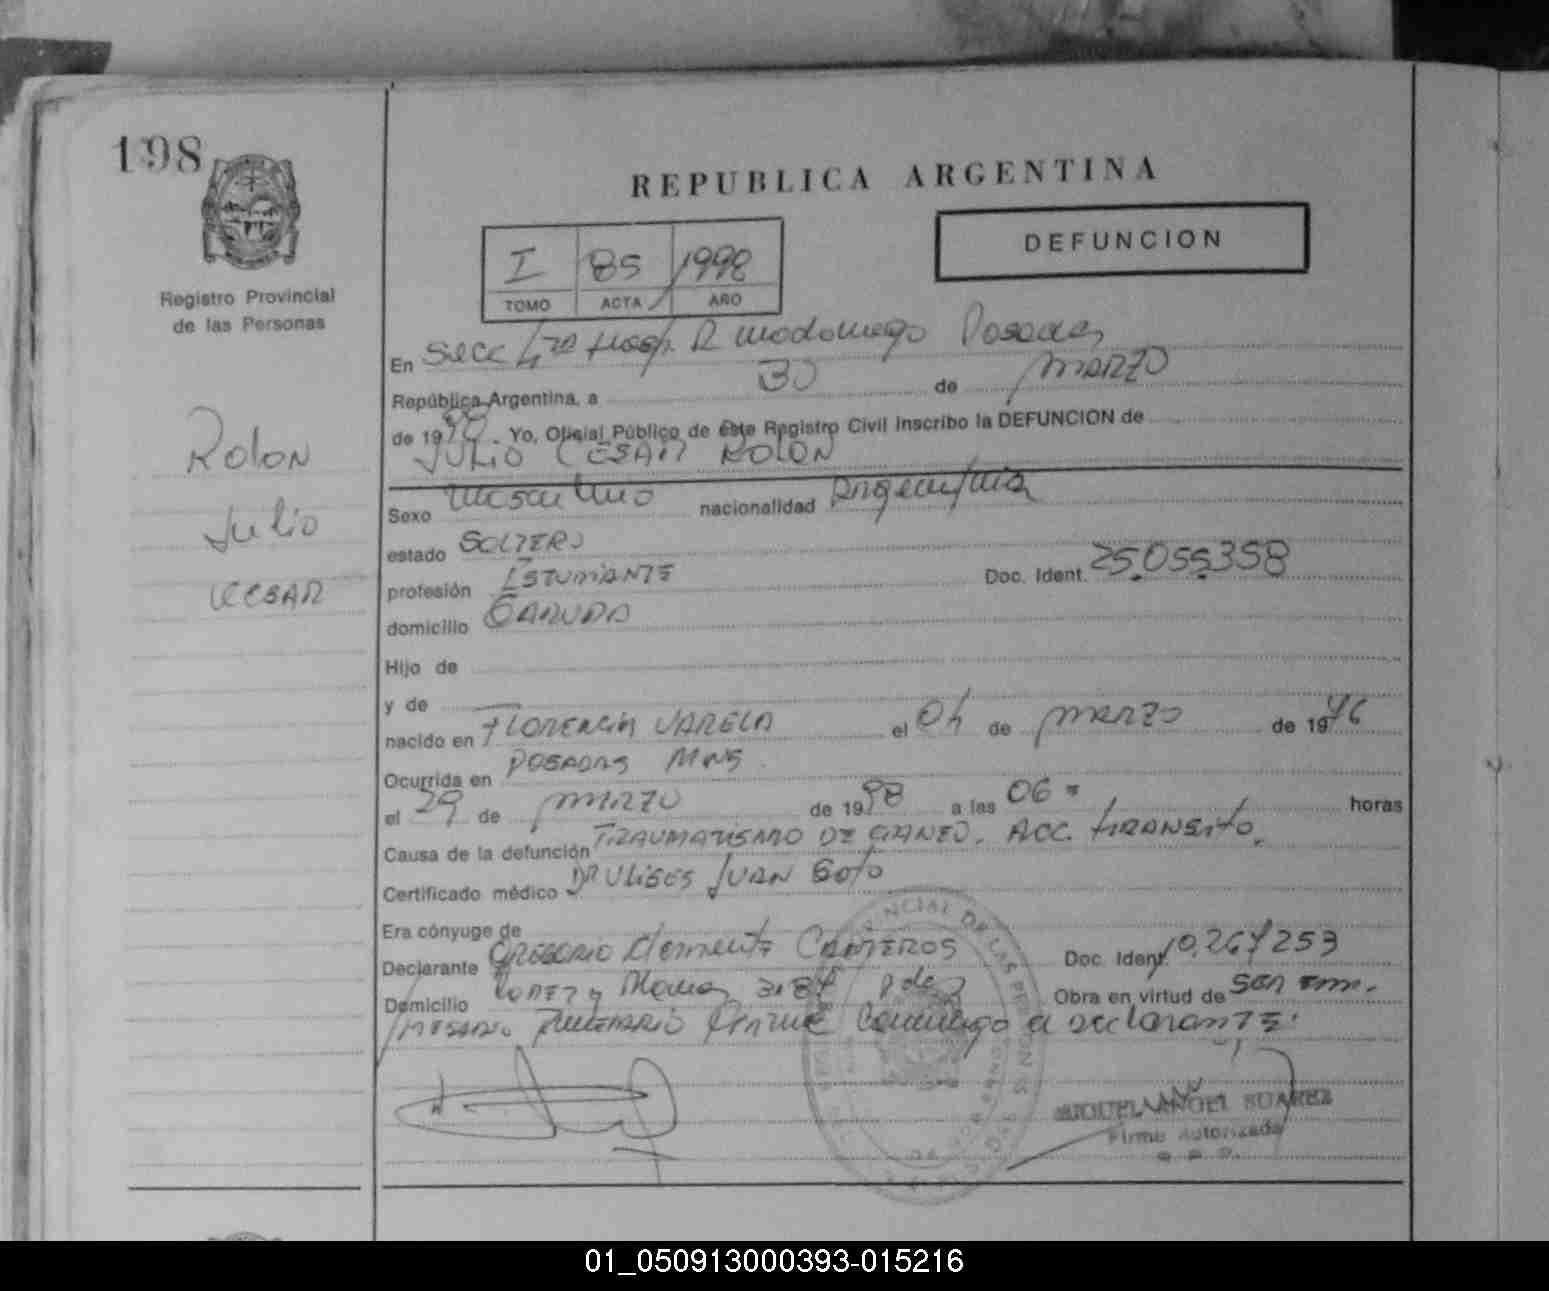 198
REPUBLICA ARGENTINA
DEFUNCION
I 85 1998
TOMO ACTA AÑO
Registro Provincial
de las Personas
Rolon
Julio
CESAR
En Secc 4ta Hosp. R Posadas
República Argentina, a 30 de MARZO
de 1998. Yo, Oficial Público de este Registro Civil inscribo la DEFUNCION de
JULIO CESAR ROLON
Sexo masculino nacionalidad Argentina
estado SOLTERO
profesión ESTUDIANTE Doc. Ident. 25.055.358
domicilio GARUPA
Hijo de
y de
nacido en FLORENCIA VARELA el 04 de MARZO de 1976
Ocurrida en POSADAS MNS.
el 29 de MARZO de 1998 a las 06 = horas
Causa de la defunción TRAUMATISMO DE CRANEO. ACC. TRANSITO.
Certificado médico DR ULISES JUAN SOTO
Era cónyuge de
Declarante GREGORIO Clemente Doc. Ident. 10.267253
Domicilio LOPEZ y Planes Obra en virtud de SER EMP.
FUNERARIO FIRMA Conmigo el declarante.
MIGUEL ANGEL SUAREZ
Firma Autorizada
01_050913000393-015216